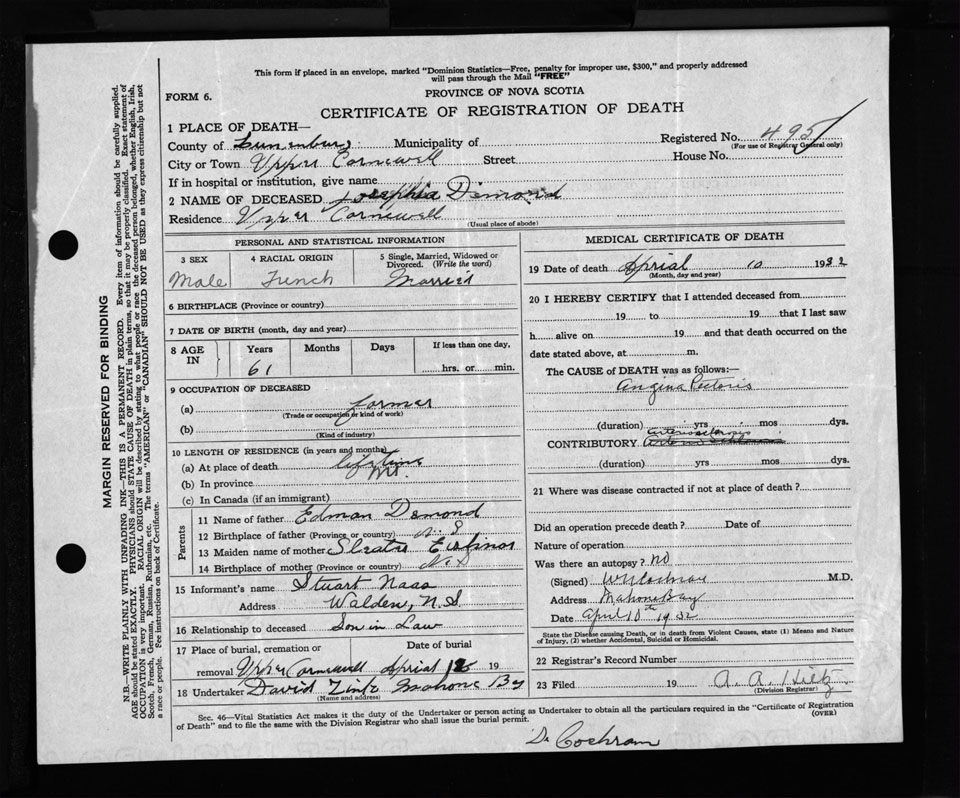 This form if placed in an envelope, marked "Dominion Statistics—Free, penalty for improper use, $300," and properly addressed
will pass through the Mail "FREE"
FORM 6.
PROVINCE OF NOVA SCOTIA
CERTIFICATE OF REGISTRATION OF DEATH
MARGIN RESERVED FOR BINDING
N.B.—WRITE PLAINLY WITH UNFADING INK—THIS IS A PERMANENT RECORD. Every item of information should be carefully supplied.
AGE should be stated EXACTLY. PHYSICIANS should STATE CAUSE OF DEATH in plain terms, so that it may be properly classified. Exact statement of
OCCUPATION is very important. RACIAL ORIGIN will be described by stating to what people or race the deceased person belonged, whether English, Irish,
Scotch, French, German, Russian, Ruthenian, etc. The terms "AMERICAN" or "CANADIAN" SHOULD NOT BE USED as they express citizenship but not
a race or people. Fee instructions on back of Certificate.
1 PLACE OF DEATH—
Registered No. 495
(For use of Registrar General only)
County of Lunenburg Municipality of
City or Town Upper Cornewell Street House No.
If in hospital or institution, give name
2 NAME OF DECEASED Dimond
Residence Upper Cornewell
(Usual place of abode)
PERSONAL AND STATISTICAL INFORMATION
3 SEX 4 RACIAL ORIGIN 5 Single, Married, Widowed or
Divorced. (Write the word)
Male French Married
6 BIRTHPLACE (Province or country)
7 DATE OF BIRTH (month, day and year)
8 AGE IN Years Months Days If less than one day,
61 hrs. or min.
9 OCCUPATION OF DECEASED
(a) farmer
(Trade or occupation or kind of work)
(b)
(Kind of industry)
10 LENGTH OF RESIDENCE (in years and months)
(a) At place of death lifetime
(b) In province
(c) In Canada (if an immigrant)
Parents
11 Name of father Edman Demond
12 Birthplace of father (Province or country) N.S
13 Maiden name of mother
14 Birthplace of mother (Province or country) N.S
15 Informant's name Stuart Naas
Address Walden, N.S.
16 Relationship to deceased Son in Law
17 Place of burial, cremation or Date of burial
removal Upper Cornewell Aprial 12 19
18 Undertaker David Zink Mahone By
(Name and address)
MEDICAL CERTIFICATE OF DEATH
19 Date of death Aprial 10 1932
(Month, day and year)
20 I HEREBY CERTIFY that I attended deceased from
19 to 19 that I last saw
h alive on 19 and that death occurred on the
date stated above, at m.
The CAUSE of DEATH was as follows:
Angina Pectoris
(duration) yrs mos dys.
CONTRIBUTORY Arteriosclerosis
(duration) yrs mos dys.
21 Where was disease contracted if not at place of death?
Did an operation precede death? Date of
Nature of operation
Was there an autopsy? No
(Signed) W Cochran M.D.
Address Mahone Bay
Date April 10th 1932
State the Disease causing Death, or in death from Violent Causes, state (1) Means and Nature
of Injury, (2) whether Accidental, Suicidal or Homicidal.
22 Registrar's Record Number
23 Filed 19 A. A. Hiltz
(Division Registrar)
Sec. 46—Vital Statistics Act makes it the duty of the Undertaker or person acting as Undertaker to obtain all the particulars required in the "Certificate of Registration
of Death" and to file the same with the Division Registrar who shall issue the burial permit. (OVER)
Dr Cochram